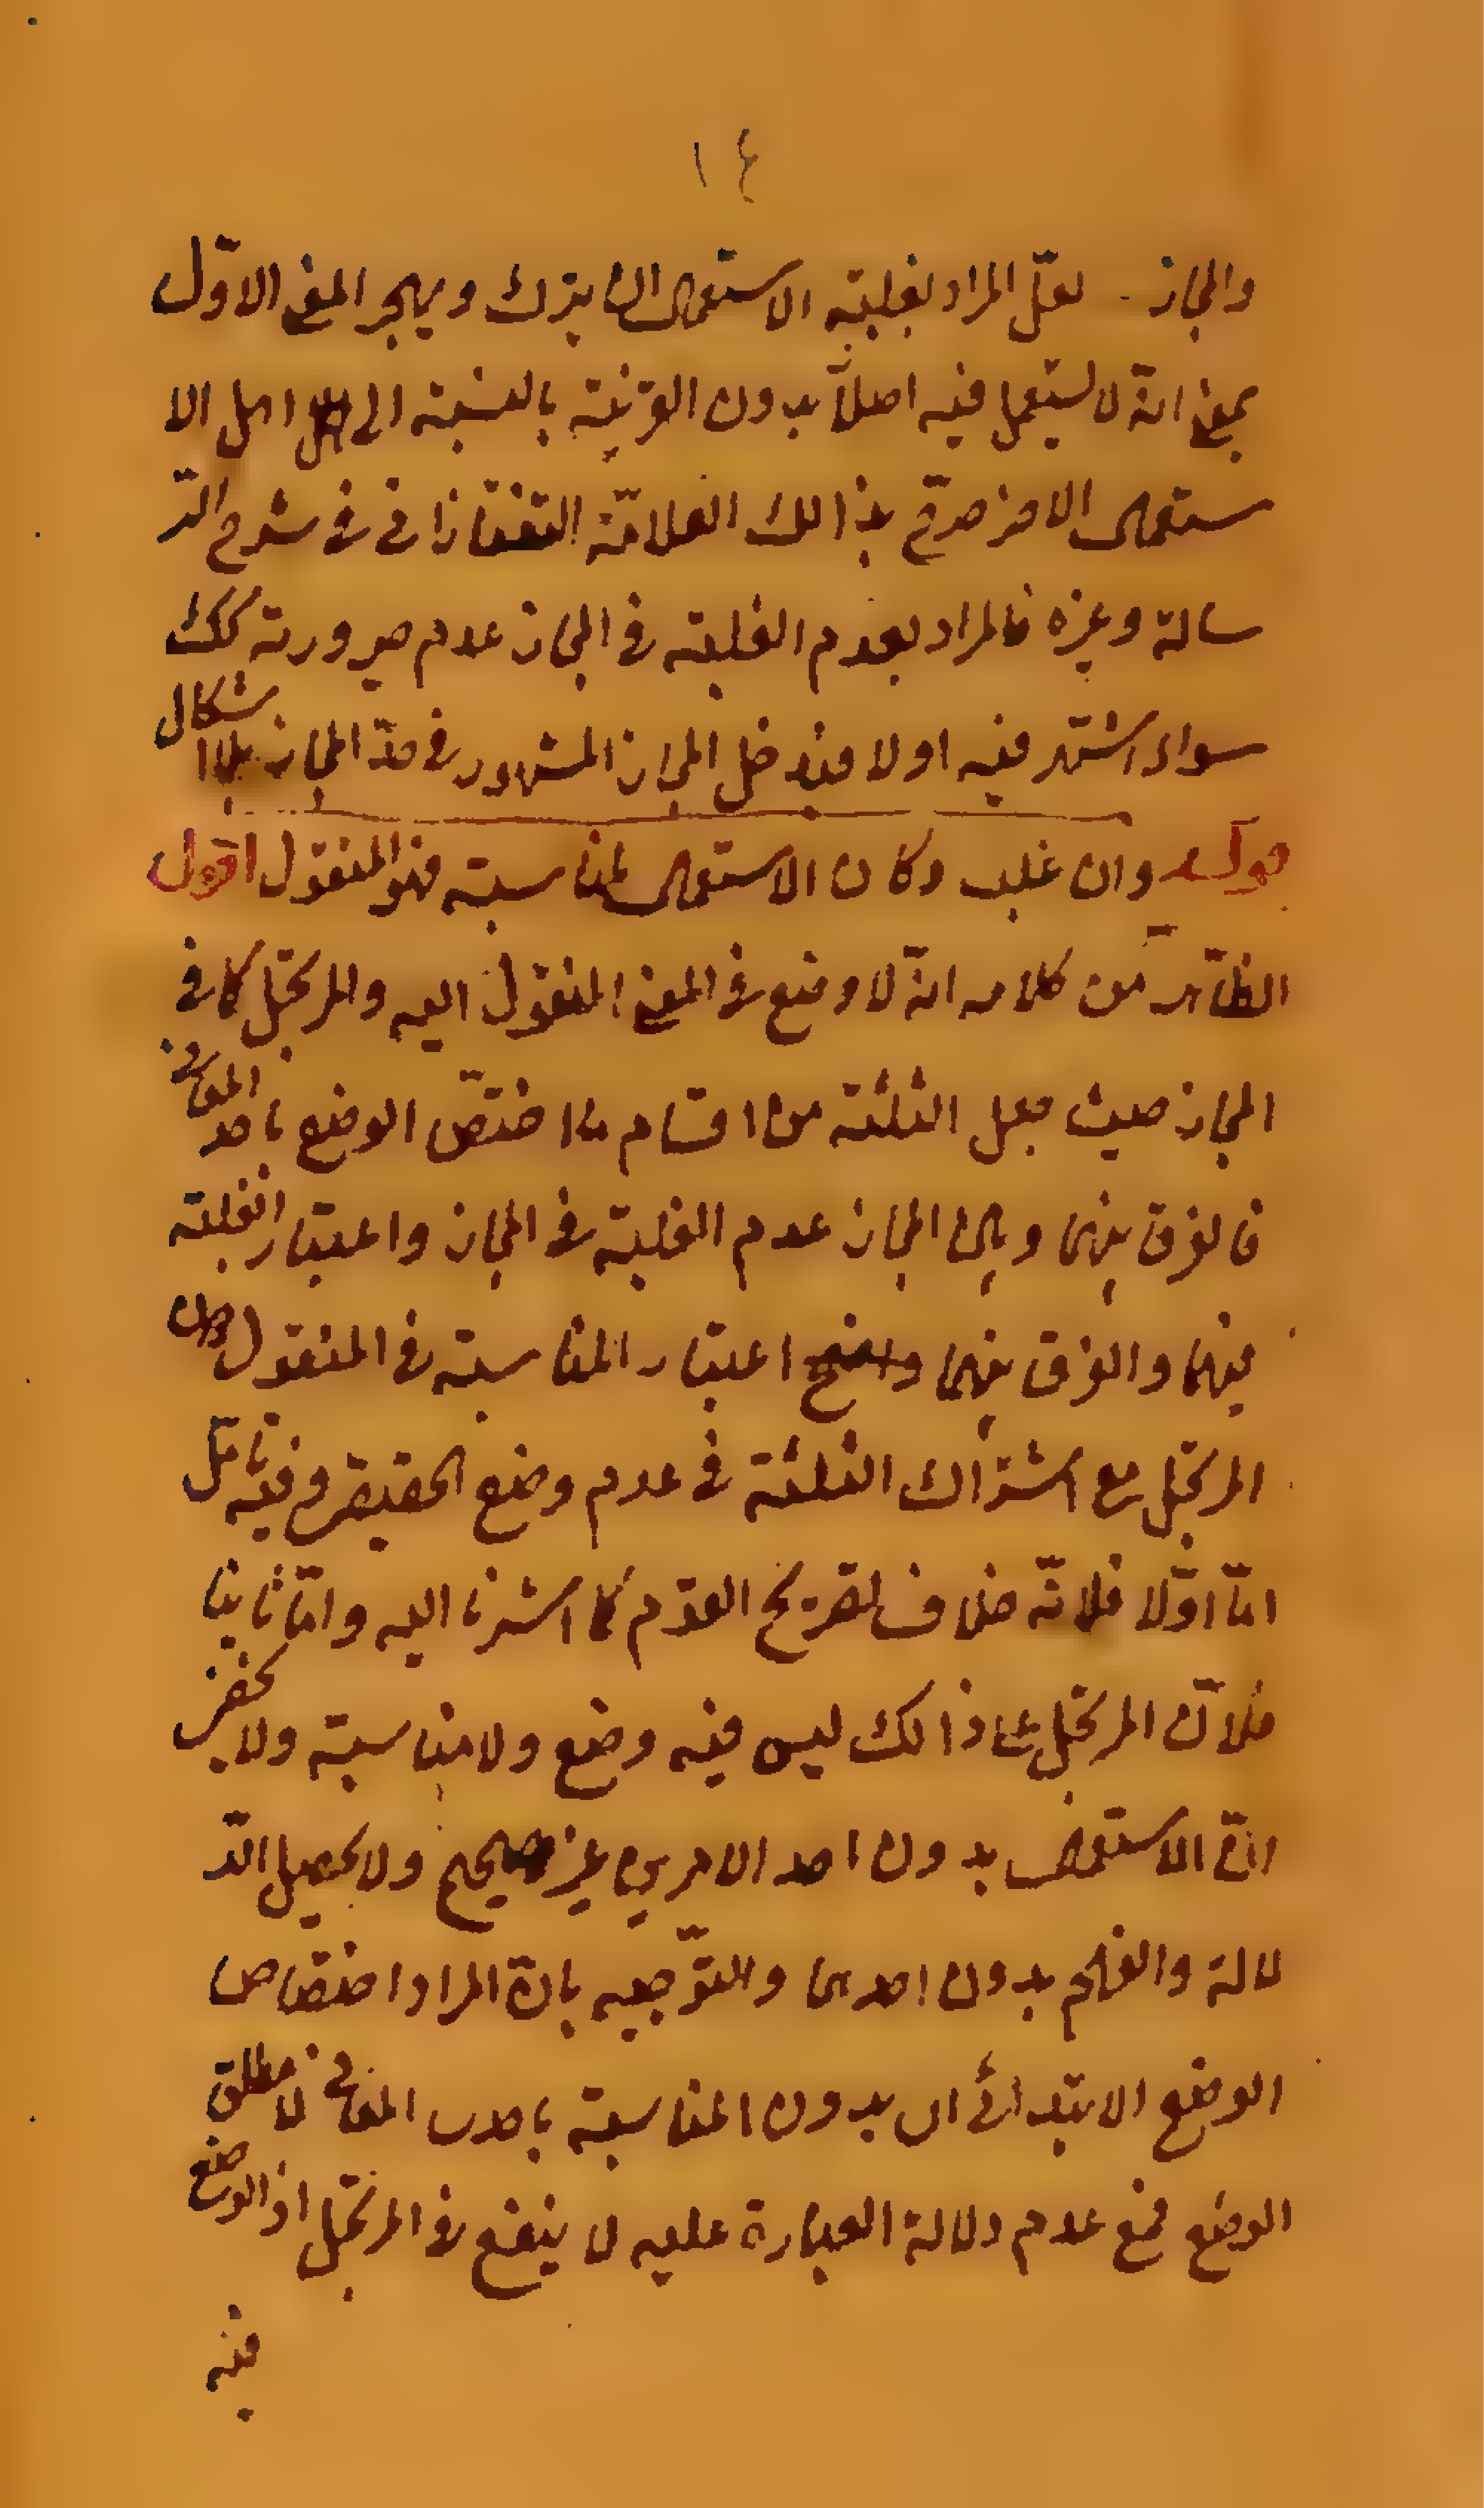 ١٤
والمجاز لعلّ المراد بغلبته الاستعمال ان يترك ويهجر المعنى الاوّل
بمعنى انّه لا يستعمل فيه اصلاً بدون القرينة بالنسبته الى اهل الا
ستعمال الاخر صرّح بذالك العلامّة التفتازانى فى شرح الرّ
سالة وغيره فالمراد بعدم الغلبته فى المجاز عدم صيرورته كك
سواء اشتهر فيه اولا فيدخل المجاز المشهور فى حدّ المجاز بلا اشكال
قوله وان غلب وكان الاستعمال لمناسبته فهو المنقول اقول
الظّاهر من كلامه انّه لا وضع فى المعنى المنقول اليه والمرتجل كما فى
المجاز حيث جعل الثلثته من اقسام ما اختصّ الوضع باحد المعانى
فالفرق بينهما وبين المجاز عدم الغلبته فى المجاز واعتبار الغلبته
فيهما والفرق بينهما واضح اعتبار المناسبته فى المنقول دون
المرتجل مع اشتراك الثلثته فى عدم وضع الحقيقى وفيه تامّل
امّا اوّلا فلانّه خلاف لتصريح القوم كما اشرنا اليه وامّا ثانيا
فلانّ المرتجل على ذالك ليس فيه وضع ولا مناسبته ولا يخفى
انّ الاستعمال بدون احد الامرين غير صحيح ولا يحصل الدّ
لالة والفهم بدون احدهما والتوّجيه بانّ المراد اختصاص
الوضع الابتدائى اى بدون المناسبته باحدى المعانى لا مطلق
الوضع فمع عدم دلالة العبارة عليه لا ينفع فى المرتجل اذ الوضع
فيه